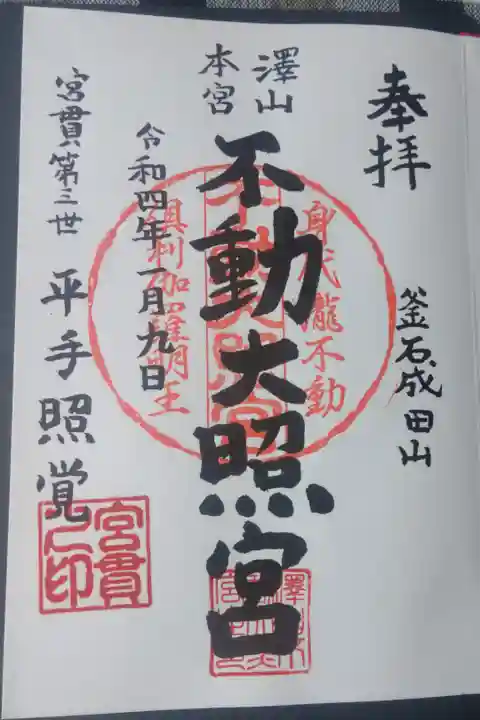 奉拝
釜石成田山
澤山
本宮
不動大照宮
身代瀧不動
倶利伽羅明王
令和四年一月九日
宮貫第三世 平手照覚
宮貫之印